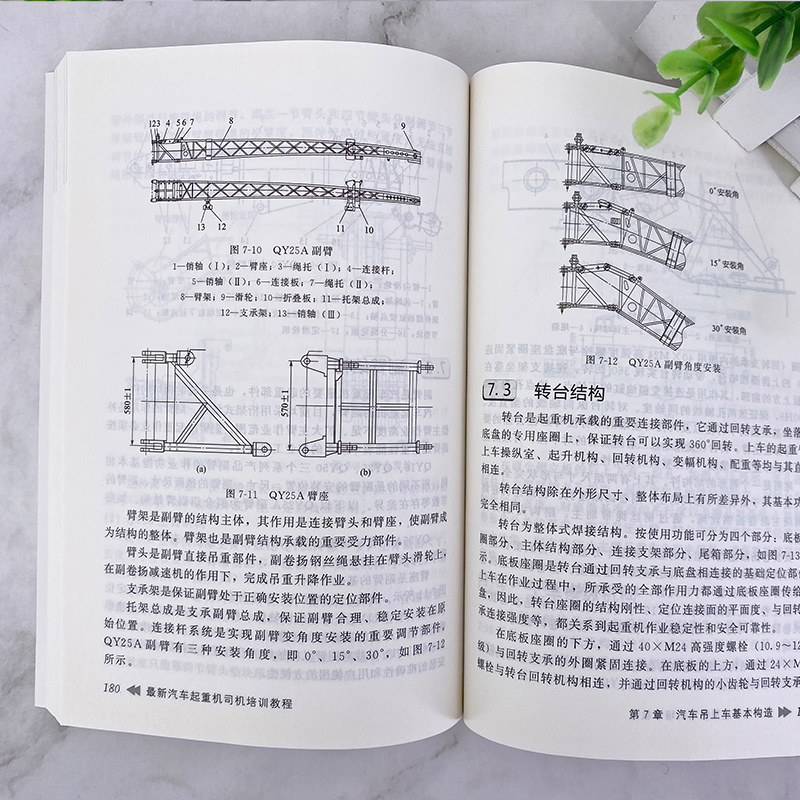 123 4 56 7 8 9
13 12 11 10
图 7-10 QY25A 副臂
1—销轴（Ⅰ）；2—臂座；3—绳托（Ⅰ）；4—连接杆；
5—销轴（Ⅱ）；6—连接板；7—绳托（Ⅱ）；
8—臂架；9—滑轮；10—折叠板；11—托架总成；
12—支承架；13—销轴（Ⅲ）
580±1
570±1
(a) (b)
图 7-11 QY25A 臂座
臂架是副臂的结构主体，其作用是连接臂头和臂座，使副臂成
为结构的整体。臂架也是副臂结构承载的重要受力部件。
臂头是副臂直接吊重部件，副卷扬钢丝绳悬挂在臂头滑轮上，
在副卷扬减速机的作用下，完成吊重升降作业。
支承架是保证副臂处于正确安装位置的定位部件。
托架总成是支承副臂总成，保证副臂合理、稳定安装在原
始位置。连接杆系统是实现副臂变角度安装的重要调节部件。
QY25A 副臂有三种安装角度，即 0°、15°、30°，如图 7-12
所示。
180 最新汽车起重机司机培训教程
0°安装角
15°安装角
30°安装角
图 7-12 QY25A 副臂角度安装
7.3 转台结构
转台是起重机承载的重要连接部件，它通过回转支承，坐落
底盘的专用座圈上，保证转台可以实现 360°回转。上车的起重
上车操纵室、起升机构、回转机构、变幅机构、配重等均与其直
相连。
转台结构除在外形尺寸、整体布局上有所差异外，其基本功
完全相同。
转台为整体式焊接结构。按使用功能可分为四个部分：底板
圈部分、主体结构部分、连接支架部分、尾箱部分，如图 7-13
示。底板座圈是转台通过回转支承与底盘相连接的基础定位部件
上车在作业过程中，所承受的全部作用力都通过底板座圈传给
盘，因此，转台座圈的结构刚性、定位连接面的平面度、与回转
承连接强度等，都关系到起重机作业稳定性和安全可靠性。
在底板座圈的下方，通过 40×M24 高强度螺栓（10.9～12
级）与回转支承的外圈紧固连接。在底板的上方，通过 24×M
螺栓与转台回转机构相连，并通过回转机构的小齿轮与回转支承
第 7 章 汽车吊上车基本构造